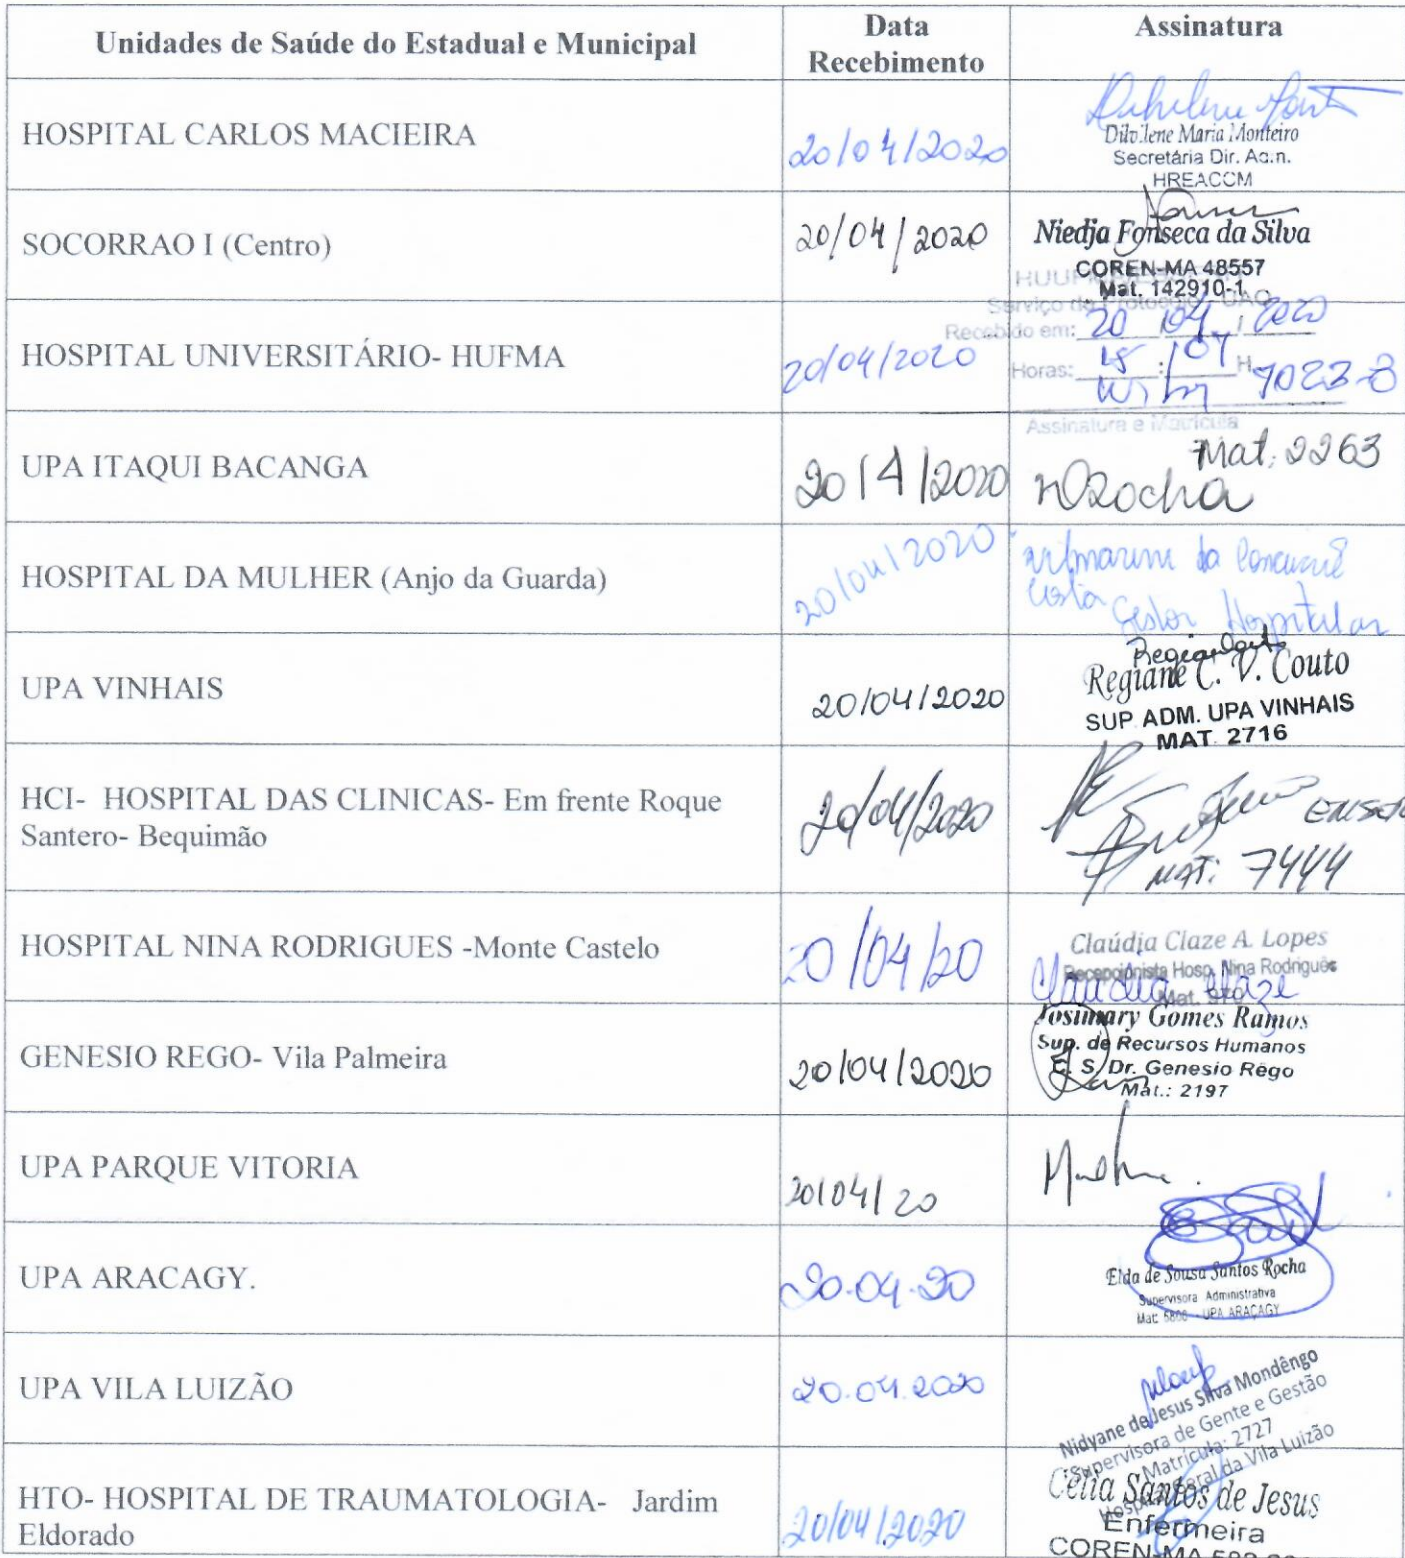 Unidades de Saúde do Estadual e Municipal
Data
Recebimento
Assinatura
HOSPITAL CARLOS MACIEIRA
20/04/2020
Maria Monteiro
Secretária Dir. Ac.n.
HREACCM
SOCORRAO I (Centro)
20/04/2020
Niedja Fonseca da Silva
COREN-MA 48557
Mat. 142910-1
HOSPITAL UNIVERSITÁRIO- HUFMA
20/04/2020
Serviço de Protocolo - UAO
Recebido em: 20 / 04 / 2020
Horas: 15 : 07 H 7023-8
Assinatura e Matrícula
UPA ITAQUI BACANGA
20/4/2020
Mat. 2263
Rocha
HOSPITAL DA MULHER (Anjo da Guarda)
20/04/2020
da
Costa
Gestor Hospitalar
UPA VINHAIS
20/04/2020
Regiane C. V. Couto
SUP. ADM. UPA VINHAIS
MAT. 2716
HCI- HOSPITAL DAS CLINICAS- Em frente Roque
Santero- Bequimão
20/04/2020
MAT: 7444
HOSPITAL NINA RODRIGUES -Monte Castelo
20/04/20
Claúdia Claze A. Lopes
Recepcionista Hosp. Nina Rodrigues
Mat. 970
Claudia Claze
GENESIO REGO- Vila Palmeira
20/04/2020
Josimary Gomes Ramos
Sup. de Recursos Humanos
C. S. Dr. Genesio Rêgo
Mat.: 2197
UPA PARQUE VITORIA
20/04/20
UPA ARACAGY.
20.04.20
Elda de Sousa Santos Rocha
Supervisora Administrativa
Mat: - UPA ARAÇAGY
UPA VILA LUIZÃO
20.04.2020
Nidyane de Jesus Silva Mondêngo
Supervisora de Gente e Gestão
Matrícula: 2727
Hospital Geral da Vila Luizão
HTO- HOSPITAL DE TRAUMATOLOGIA- Jardim
Eldorado
20/04/2020
Célia Santos de Jesus
Enfermeira
COREN-MA